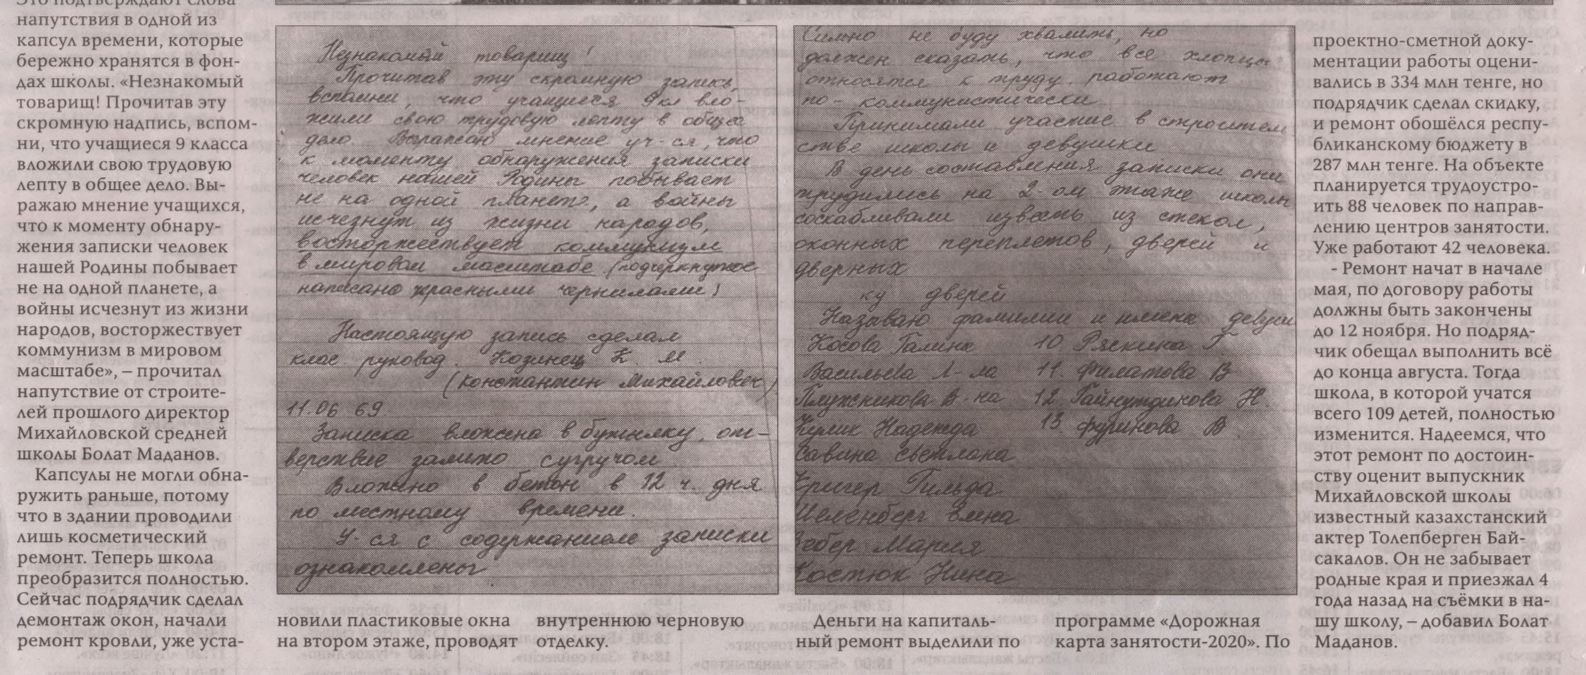 Это подтверждают слова
напутствия в одной из
капсул времени, которые
бережно хранятся в фон-
дах школы. «Незнакомый
товарищ! Прочитав эту
скромную надпись, вспом-
ни, что учащиеся 9 класса
вложили свою трудовую
лепту в общее дело. Вы-
ражаю мнение учащихся,
что к моменту обнару-
жения записки человек
нашей Родины побывает
не на одной планете, а
войны исчезнут из жизни
народов, восторжествует
коммунизм в мировом
масштабе», – прочитал
напутствие от строите-
лей прошлого директор
Михайловской средней
школы Болат Маданов.
Капсулы не могли обна-
ружить раньше, потому
что в здании проводили
лишь косметический
ремонт. Теперь школа
преобразится полностью.
Сейчас подрядчик сделал
демонтаж окон, начали
ремонт кровли, уже уста-
Незнакомый товарищ!
Прочитав эту скромную запись,
вспомни, что учащиеся 9 кл вло-
жили свою трудовую лепту в общее
дело. Выражаю мнение уч-ся, что
к моменту обнаружения записки
человек нашей Родины побывает
не на одной планете, а войны
исчезнут из жизни народов,
восторжествует коммунизм
в мировом масштабе (подчеркнутое
написано красными чернилами)
Настоящую запись сделал
клас руковод. Козинец К. М.
(Константин Михайлович)
11.06 69.
Записка вложена в бутылку, от-
верстие залито сургучом
Вложено в бетон в 12 ч. дня
по местному времени.
У-ся с содержанием записки
ознакомлены
новили пластиковые окна
на втором этаже, проводят
внутреннюю черновую
отделку.
Сильно не буду хвалить, но
должен сказать, что все хлопцы
относятся к труду. работают
по-коммунистически
Принимали участие в строитель
стве школы и девушки
В день составления записки они
трудились на 2-ом этаже школы
соскабливали известь из стекол,
оконных переплетов, дверей и
дверных
ку дверей
Называю фамилии и имена девуш
Косова Галина 10 Ряскина Г
Васильева Л-ла 11. Филатова В
Плужникова В-на 12 Гайнутдинова Н.
Надежда 13 Фуринова В
Савина Светлана
Кригер Гильда
Эмна
Вебер Мария
Костюк Нина
Деньги на капиталь-
ный ремонт выделили по
программе «Дорожная
карта занятости-2020». По
проектно-сметной доку-
ментации работы оцени-
вались в 334 млн тенге, но
подрядчик сделал скидку,
и ремонт обошёлся респу-
бликанскому бюджету в
287 млн тенге. На объекте
планируется трудоустро-
ить 88 человек по направ-
лению центров занятости.
Уже работают 42 человека.
- Ремонт начат в начале
мая, по договору работы
должны быть закончены
до 12 ноября. Но подряд-
чик обещал выполнить всё
до конца августа. Тогда
школа, в которой учатся
всего 109 детей, полностью
изменится. Надеемся, что
этот ремонт по достоин-
ству оценит выпускник
Михайловской школы
известный казахстанский
актер Толепберген Бай-
сакалов. Он не забывает
родные края и приезжал 4
года назад на съёмки в на-
шу школу, – добавил Болат
Маданов.